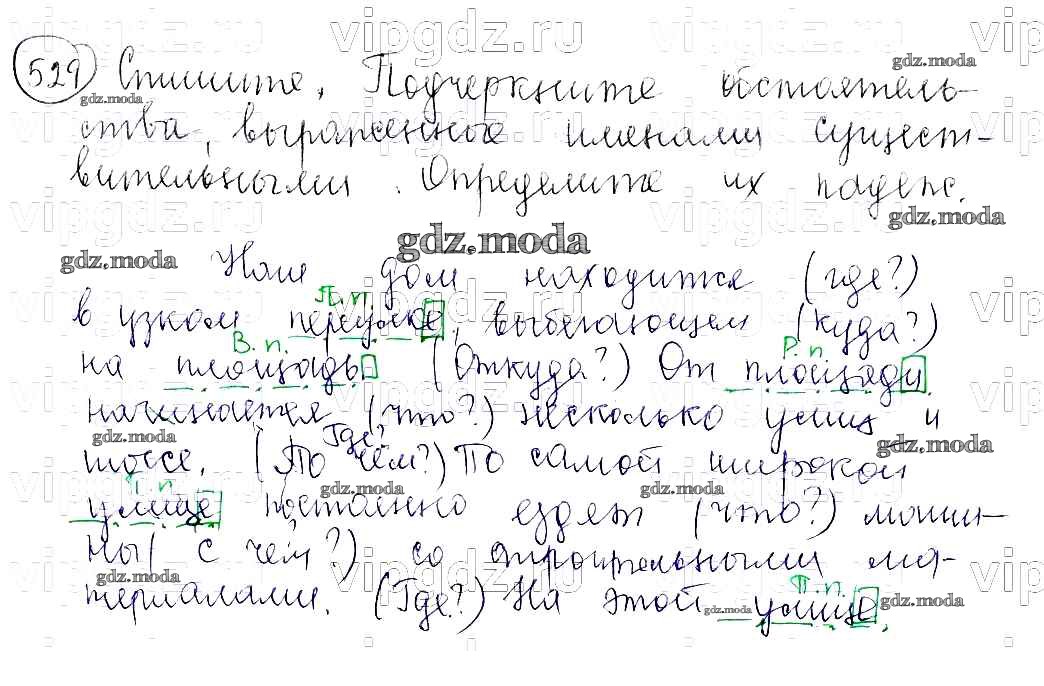 529 Спишите. Подчеркните обстоятель-
ства, выраженные именами сущест-
вительными. Определите их падеж.
Наш дом находится (где?)
П.п.
в узком переулке, выбегающем (куда?)
В.п. Р.п.
на площадь (Откуда?) От площади
начинается (что?) несколько улиц и
Где?
шоссе. (По чём?) По самой широкой
п.
улице постоянно ездят (что?) маши-
ны (с чем?) со строительными ма-
П.п.
териалами. (Где?) На этой улице
vipgdz.ru
gdz.moda